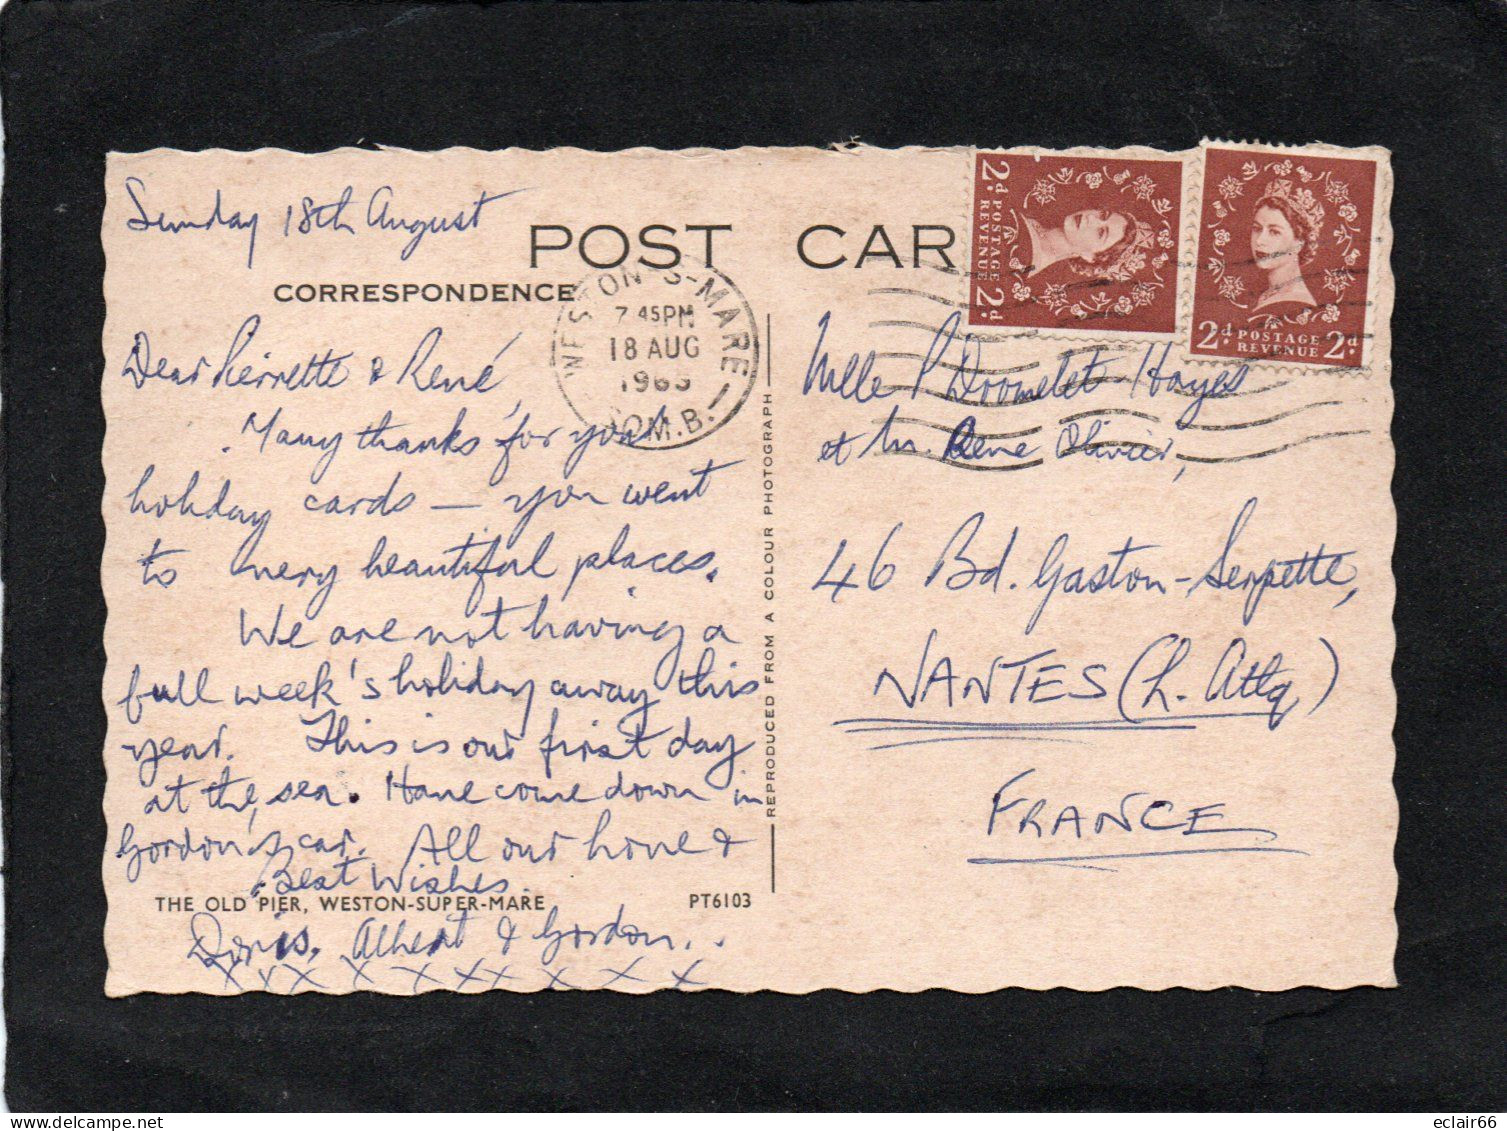 Sunday 18th August
POST CAR
CORRESPONDENCE
Dear Pierrette & René,
Many thanks for your
holiday cards — you went
to very beautiful places.
We are not having a
full week's holiday away this
year. This is our first day
at the sea. Have come down in
Gordon's car. All our love &
Best Wishes.
THE OLD PIER, WESTON-SUPER-MARE PT6103
Doris, Albert & Gordon..
x x x x x x x x x x x
REPRODUCED FROM A COLOUR PHOTOGRAPH
WESTON-S-MARE
7.45PM
18 AUG
1963
SOM.B.
2d POSTAGE REVENUE 2d
2d POSTAGE REVENUE 2d
Melle P Hayes
et M. René Olivier,
46 Bd. Gaston-Serpette,
NANTES (L. Atlq)
FRANCE
eclair66